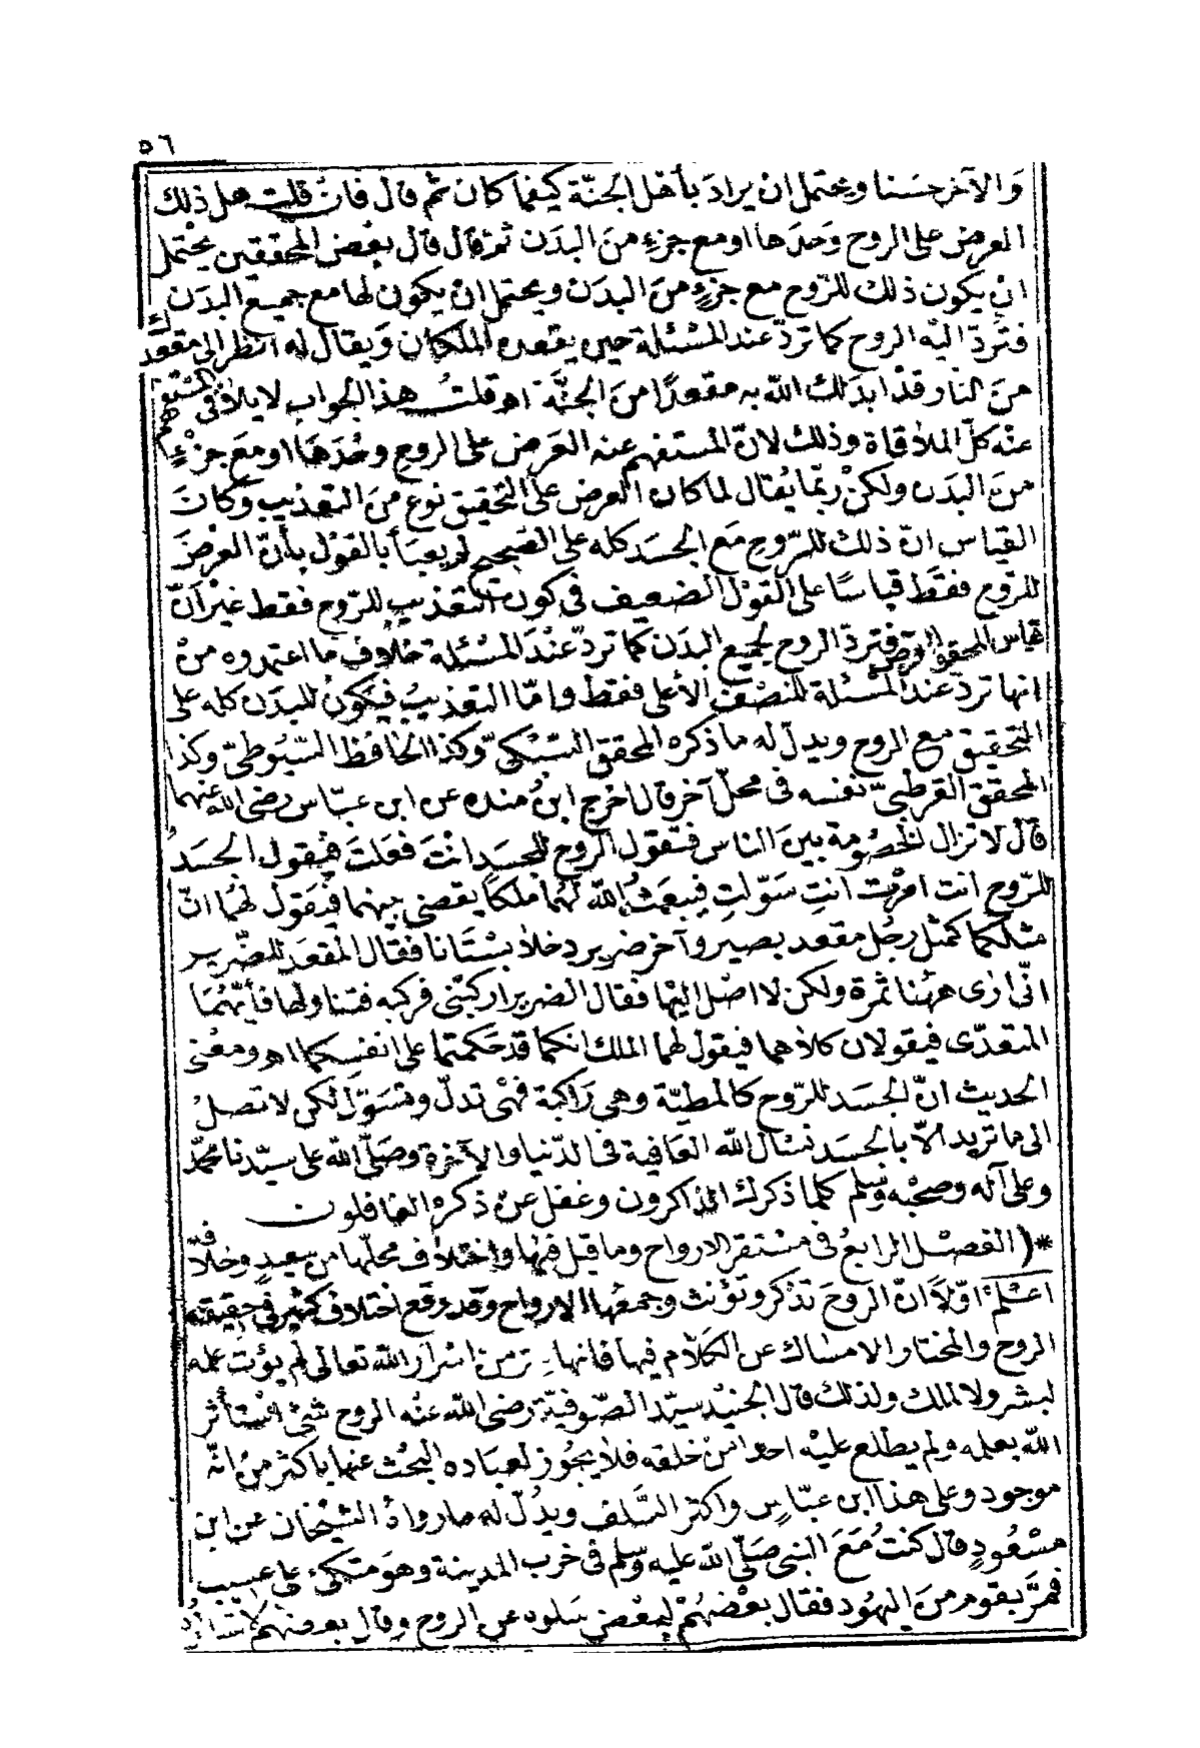 ٥٦
وَالآخر حَسَنا ويحتمل ان يرادَ بأهل الجنّة كيفما كان ثم قال فان قلت هل ذلك
العرض على الروح وَحدَها او مع جزءٍ منَ البدَن ثم قال قال بعض المحققين يحتمل
انْ يكون ذلك للرّوح مع جزءٍ منَ البدَن ويحتمل انْ يكون لها مع جميع البدَن
فتردّ اليْه الروح كما تردّ عند المسْئلة حين يقعده الملكان وَيقال له انظر الى مقعدك
منَ النار وقدْ ابدَلك اللّه به مقعدًا منَ الجنَّة اهـ قلتُ هذا الجواب لا يلاقى المستفهم
عنْه كلّ الملاقاة وذلك لانّ المستفهم عنه العَرض على الروح وحْدَهَا او مَعَ جزْءٍ
منَ البدَن ولكنْ ربّما يُقال لما كان العرض على التحقيق نوع منَ التعذيب وَكانَ
القياس انّ ذلك للرّوح مَع الجسَد كله على الصَحيح لم يعبَأ بالقوْل بأنّ العرْضَ
للرّوح فقَط قياسًا على القوْل الضعيف فى كون التعذيب للرّوح فقط غيْر اَنّ
قياس المحقق العرض فتردّ الروح لجميع البدَن كما تردّ عنْدَ المسْئلة خلاف ما اعتمدوه منْ
انها تردّ عند المسْئلة للنصْف الأعلى فقط وامّا التعذيبُ فيَكونُ للبدَن كله على
التحقيق مع الروح ويدلّ له ما ذكره المحقق السّبْكىّ وكذا الحَافظ السّيُوطىّ وكذا
المحقق القرطبىّ نفسه فى محلّ آخر قال اخرج ابنُ منده عن ابن عبّاس رضى الله عنهما
قال لا تزال الخصُومة بين الناس فتقول الروح للجسَدِ انْتَ فعَلتَ فيقول الجسَدُ
للرّوح انت امرْت انتِ سَوّلتِ فيبعَثُ اللّه لهُما ملكًا يقضى بينهما فيَقول لهُما انّ
مثلكما كمثل رجُل مقعد بصير وآخر ضرير دخلا بسْتَانا فقال المقعَد للضّرير
انّى ارى ههُنا ثمرة ولكن لا اصْل اليْها فقال الضرير اركبْنى فركبه فتناولها فأيّهُمَا
المتعدّى فيقولان كلاهما فيقول لهما الملك انكما قد حَكمتما على انفسِكما اهـ ومعْنى
الحديث انّ الجسَد للرّوح كالمطيّة وهى رَاكبة فهْى تدلّ وتسَوّل لكن لا تصلْ
الى ما تريد الاّ بالجسَد نسْأل اللّه العَافية فى الدّنيا والآخرة وصَلّى اللّه على سيّدنا محمّد
وعلى آله وصحْبه وسلم كلما ذكرك الذاكرون وغفل عنْ ذكره الغافلون
*( الفصْل الرابعُ فى مسْتقر الارواح وما قيل فيها واخْتلاف محلّها من سعيد وخلافه
اعْلمْ اوّلاً انّ الروحَ تذكر وتؤنث وجمعُها الارواح وقد وقع اختلاف كثير فى حقيقة
الروح والمختار الامسَاك عن الكلام فيها فانها سرّ منْ اسْرَار اللّه تعالى لم يؤت علمه
لبشر ولا لملك ولذلك قال الجنيْد سيّد الصّوفيّة رضى اللّه عنْه الروح شئ اسْتأثر
اللّه بعلمه ولم يطلع عليْه احدا منْ خلقه فلا يجُوز لعبَاده البحْث عنها باكثر منْ انّه
موجود وعلى هذا ابن عبّاس واكثر السَّلف ويدُلّ له ما رواهُ الشيْخان عن ابن
مسْعُودٍ قال كنتُ مَعَ النبى صَلّى اللّه عليه وسلم فى خرب المدينة وهوَ متكئ على عسيب
فمرَّ بقوم منَ اليهُود فقال بعْضهُمْ لبعْض سَلوه عن الروح وقال بعضهُم لا تسْألوه